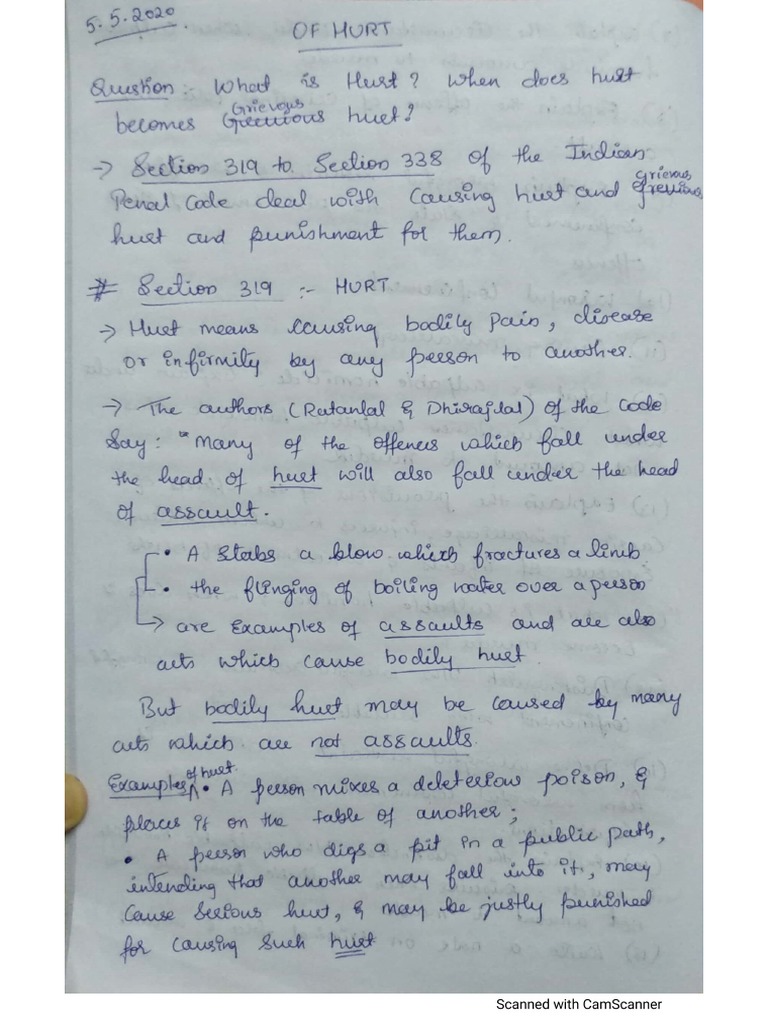 5.5.2020
OF HURT
Question :- What is Hurt? When does hurt
Grievous
becomes Greevious hurt?
→ Section 319 to Section 338 of the Indian
Grievous
Penal Code deal with causing hurt and Grevious
hurt and punishment for them.
# Section 319 :- HURT
→ Hurt means causing bodily pain, disease
or infirmity by any person to another.
→ The authors (Ratanlal & Dhirajlal) of the Code
Say: "Many of the offences which fall under
the head of hurt will also fall under the head
of assault.
• A stabs a blow which fractures a limb
• the flinging of boiling water over a person
→ are Examples of assaults and are also
acts which cause bodily hurt.
But bodily hurt may be caused by many
acts which are not assaults.
of hurt
Examples • A person mixes a deleterious poison, &
places it on the table of another;
• A person who digs a pit in a public path,
intending that another may fall into it, may
cause serious hurt, & may be justly punished
for causing such hurt
Scanned with CamScanner